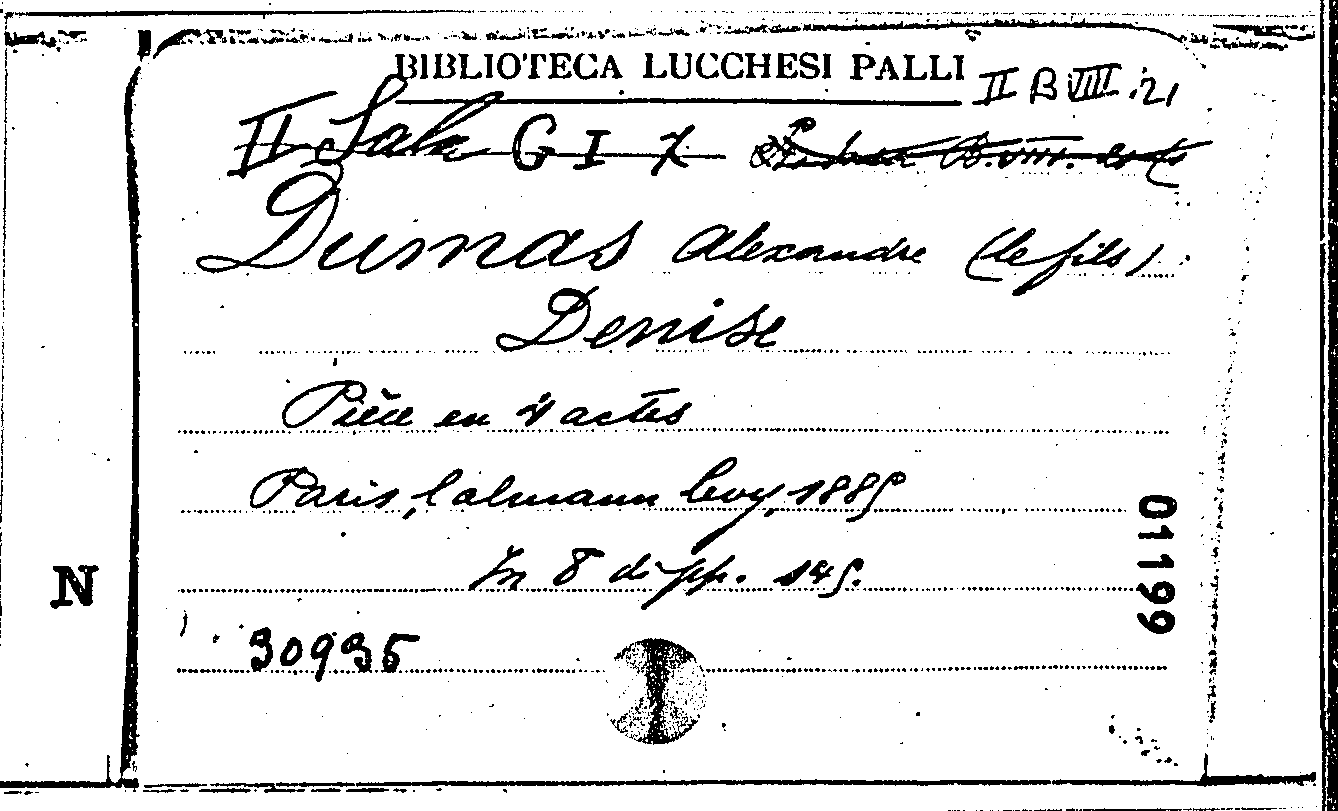 BIBLIOTECA LUCCHESI PALLI
II B VIII .21
II Sala G I 7
Dumas Alexandre (le fils)
Denise
Pièce en 4 actes
Paris, Calmann Levy, 1885
In 8 di pp. 145.
30935
01199
N